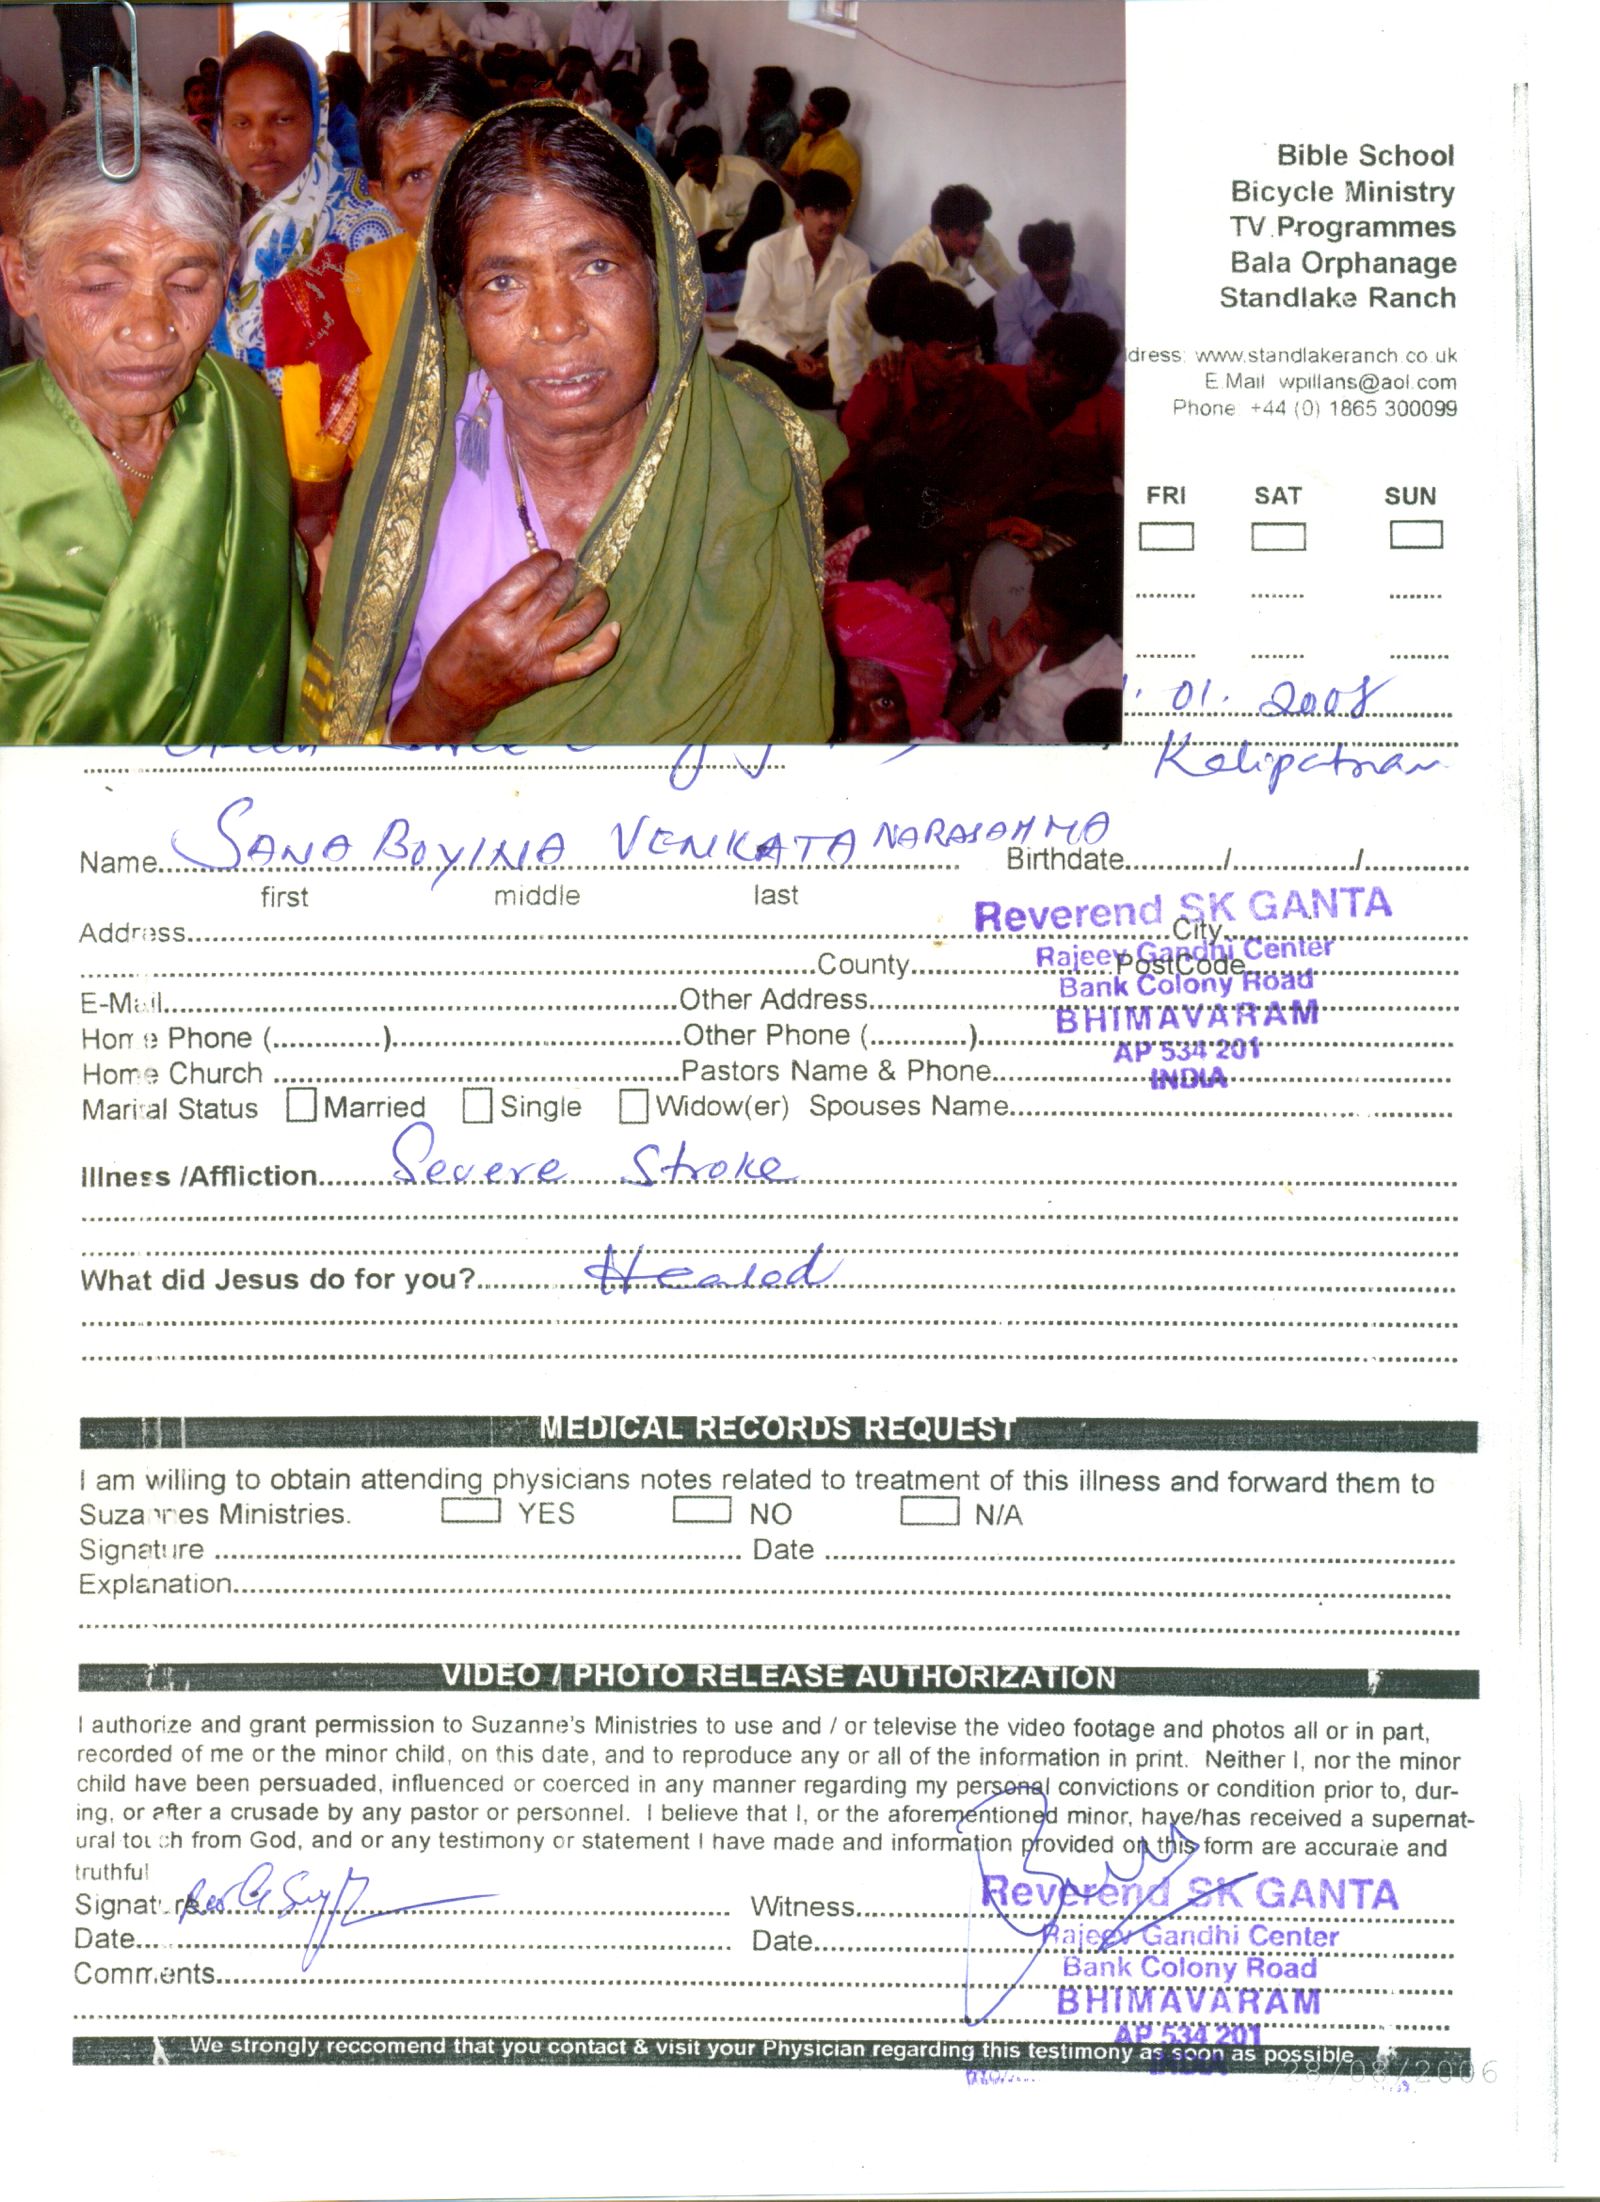 Bible School
Bicycle Ministry
TV Programmes
Bala Orphanage
Standlake Ranch
dress: www.standlakeranch.co.uk
E.Mail wpillans@aol.com
Phone +44 (0) 1865 300099
FRI SAT SUN
01. 2008
Name SANA BOYINA VENKATA NARASAMMA Birthdate / /
first middle last
Reverend SK GANTA
Address City
Rajeev Gandhi Center
County PostCode
Bank Colony Road
E-Mail Other Address
BHIMAVARAM
Home Phone ( ) Other Phone ( )
AP 534 201
Home Church Pastors Name & Phone
INDIA
Marital Status Married Single Widow(er) Spouses Name
Illness /Affliction Severe Stroke
What did Jesus do for you? Healed
MEDICAL RECORDS REQUEST
I am willing to obtain attending physicians notes related to treatment of this illness and forward them to
Suzannes Ministries. YES NO N/A
Signature Date
Explanation
VIDEO / PHOTO RELEASE AUTHORIZATION
I authorize and grant permission to Suzanne's Ministries to use and / or televise the video footage and photos all or in part,
recorded of me or the minor child, on this date, and to reproduce any or all of the information in print. Neither I, nor the minor
child have been persuaded, influenced or coerced in any manner regarding my personal convictions or condition prior to, dur-
ing, or after a crusade by any pastor or personnel. I believe that I, or the aforementioned minor, have/has received a supernat-
ural touch from God, and or any testimony or statement I have made and information provided on this form are accurate and
truthful
Signature Witness
Reverend SK GANTA
Date Date
Rajeev Gandhi Center
Comments
Bank Colony Road
BHIMAVARAM
AP 534 201
We strongly reccomend that you contact & visit your Physician regarding this testimony as soon as possible
INDIA
28/08/2006